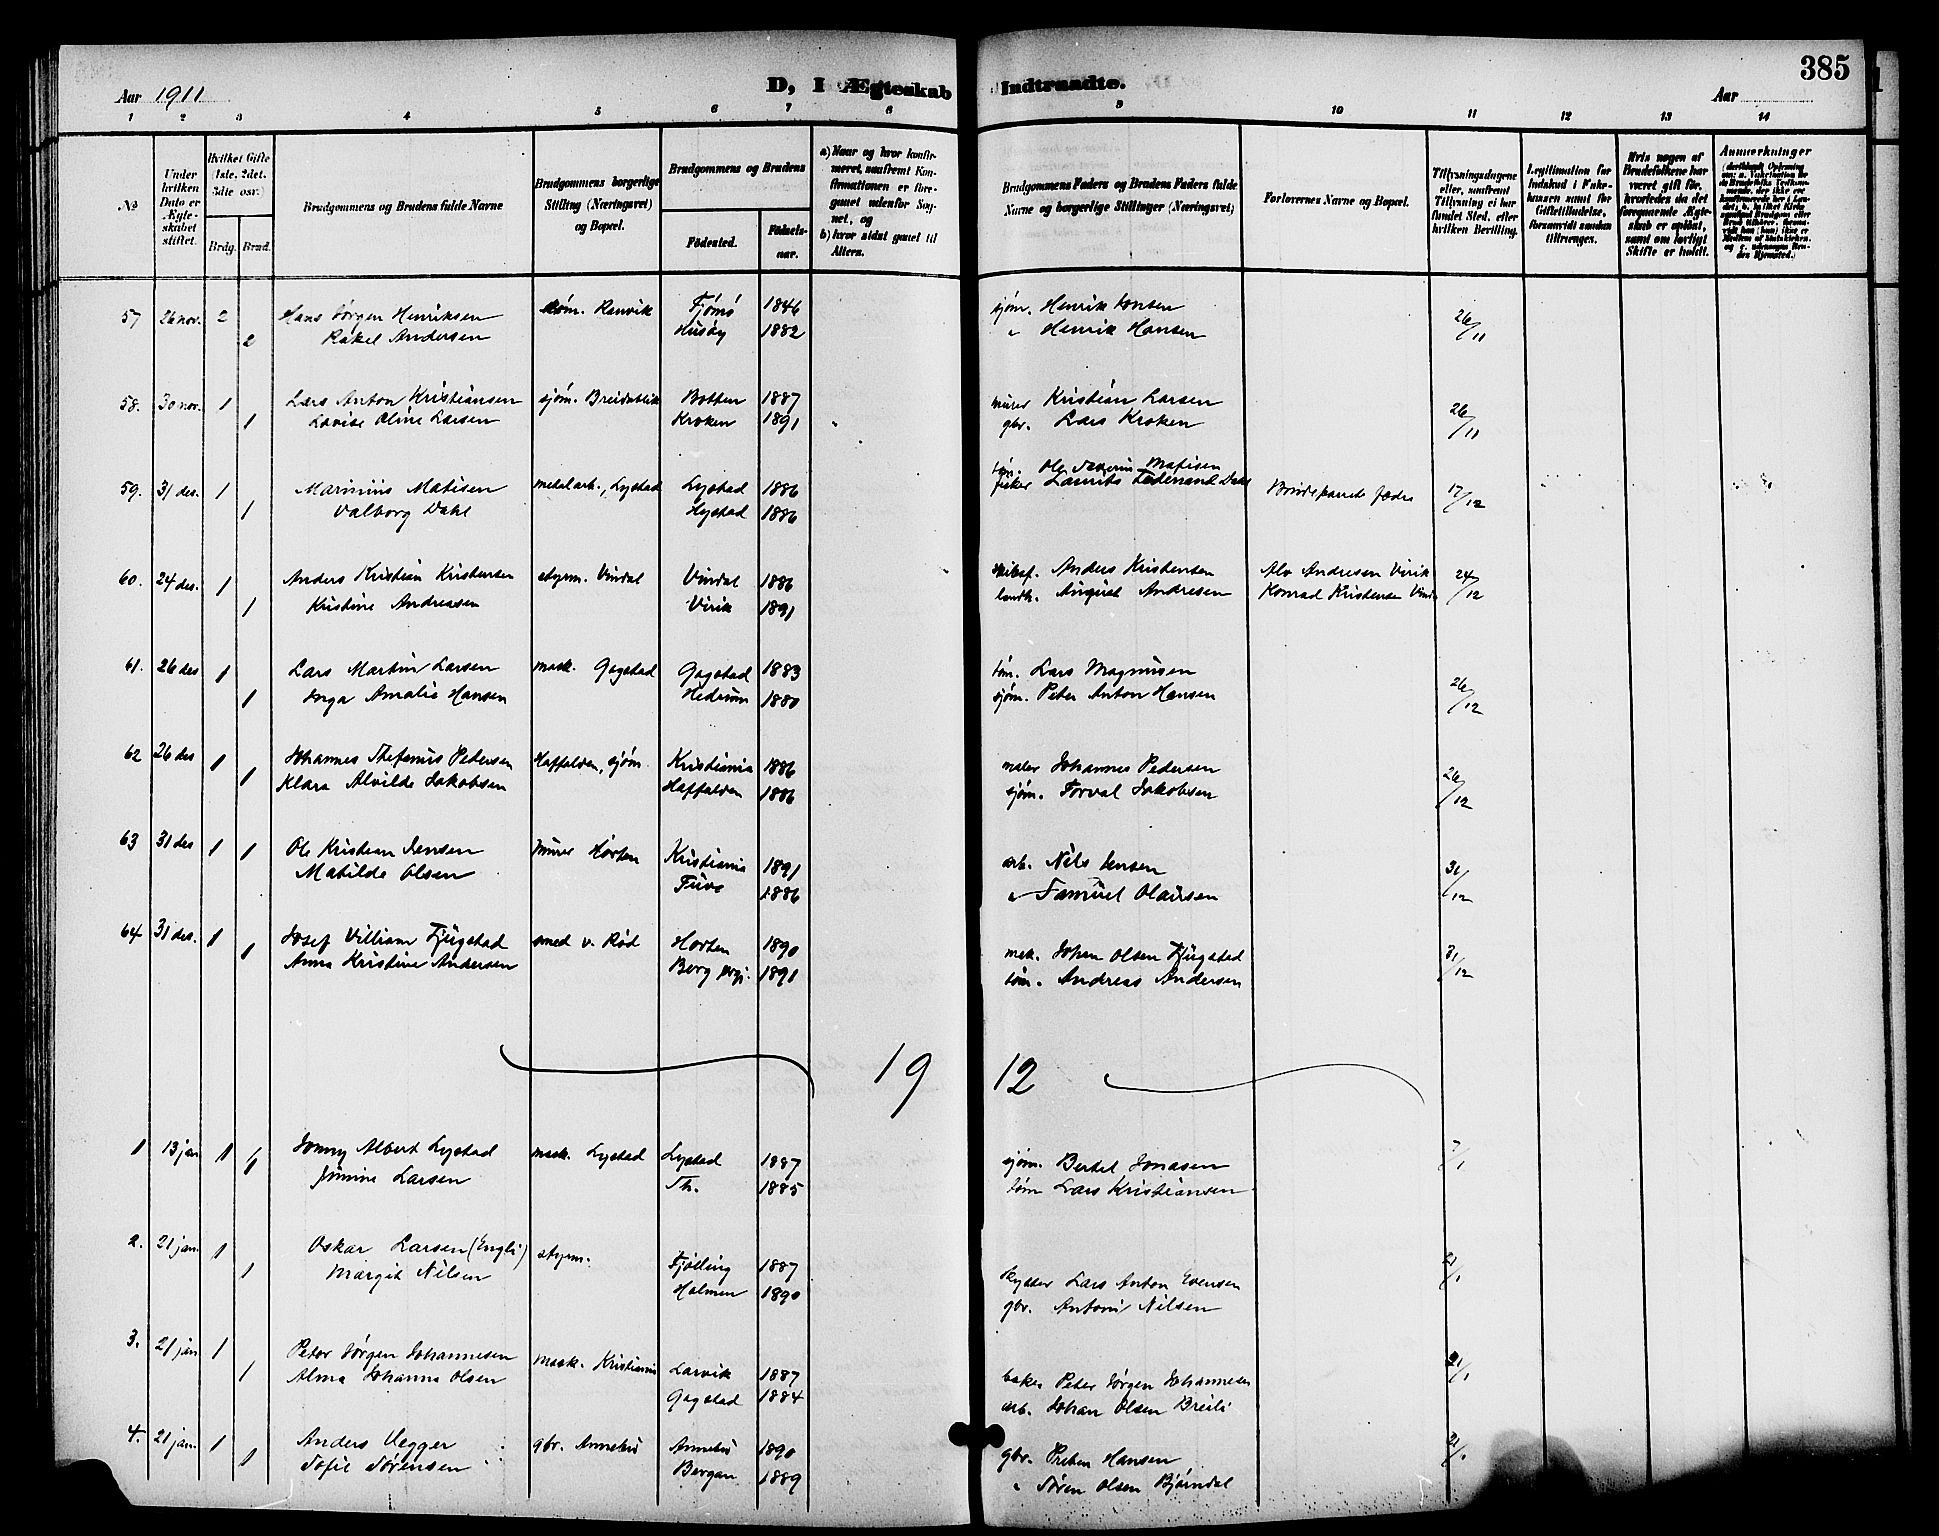 385
Aar 1911
D, I Ægteskab Indtraadte.
Aar
1 2 3 4 5 6 7 8 9 10 11 12 13 14
No
Under hvilken Dato er Ægteskabet stiftet.
Hvilket Gifte (1ste, 2det, 3die osv.)
Brdg. Brud.
Brudgommens og Brudens fulde Navne
Brudgommens borgerlige Stilling (Næringsvei) og Bopæl.
Brudgommens og Brudens
Fødested.
Fødselsaar.
a) Naar og hvor konfirmeret, naafremt Konfirmationen er foregaaet udenfor Sognet, og
b) hvor sidst gaaet til Alters.
Brudgommens Faders og Brudens Faders fulde Navne og borgerlige Stillinger (Næringsvei)
Forlovernes Navne og Bopæl.
Tillysningsdagene eller, naafremt Tillysning ei har fundet Sted, efter hvilken Bevilling.
Legitimation for Indskud i Enkekassen samt for Giftetilladelse, forsaavidt saadan tiltrænges.
Hvis nogen af Brudefolkene har været gift før, hvorledes da det foregaaende Ægteskab er opløst, samt om lovligt Skifte er holdt.
Anmærkninger
57 26 nov. 2 Hans Jørgen Henriksen sjøm. Ranvik Tjømø 1846 sjøm. Henrik Jonsen 26/11
2 Rakel Andersen Husøy 1882 " Henrik Hansen
58. 30 nov. 1 Lars Anton Kristiansen sjøm. Breidablik Botten 1887 murer Kristian Larsen 26/11
1 Lovise Oline Larsen Kroken 1891 gbr. Lars Kroken
59. 31 des. 1 Marinius Matisen metalarb., Lystad Lystad 1886 tøm. Ole Severin Matisen
1 Valborg Dahl Hystad 1886 fisker Laurits Ferdinand Dahl Brudeparrets fædre 17/12
60. 24 des. 1 Anders Kristian Kristensen styrm. Vindal Vindal 1886 skibsf. Anders Kristensen Alv Andresen Virik 24/12
1 Kristine Andreasen Virik 1891 landh. August Andresen Konrad Kristensen
61. 26 des 1 Lars Martin Larsen mask. Gogstad Gogstad 1883 tøm. Lars Magnusen 26/12
1 Inga Amalie Hansen Hedrum 1880 sjøm. Peter Anton Hansen
62 26 des 1 1 Johannes Stefanus Pedersen Haffalden, sjøm. Kristiania 1886 maler Johannes Pedersen 26/12
Klara Alvilde Jakobsen Haffalden 1886 sjøm. Torval Jakobsen
63 31 des 1 1 Ole Kristian Jensen murer Horten Kristiania 1891 arb. Nils Jensen 31/12
Matilde Olsen Tuve 1886 " Samuel Olausen
64 31 des. 1 1 Josef Villiam Fjugstad smed v. Rød Horten 1890 mek. Johan Olsen Fjugstad 31/12
Anna Kristine Andersen Berg prgj. 1891 tøm. Andreas Andersen
1912
1 13 jan 1 1 Jonny Albert Lystad mask. Lystad Lystad 1887 sjøm. Bertel Jonasen 7/1
Jonine Larsen Th. 1885 tøm Lars Kristiansen
2. 21 jan. 1 Oskar Larsen (Engli) styrm. Tjølling 1887 skytter Lars Anton Evensen 21/1
1 Margit Nilsen Holmen 1890 gbr. Anton Nilsen
3. 21 jan 1 Peter Jørgen Johannesen mask. Kristiania Larvik 1887 baker Peter Jørgen Johannesen 21/1
1 Alma Johanna Olsen Gogstad 1884 arb. Johan Olsen Breili
4. 21 jan. 1 Anders Vegger gbr. Annebu Annebu 1890 gbr. Preben Hansen 21/1
1 Sofie Sørensen Bergan 1889 " Søren Olsen Bjørndal